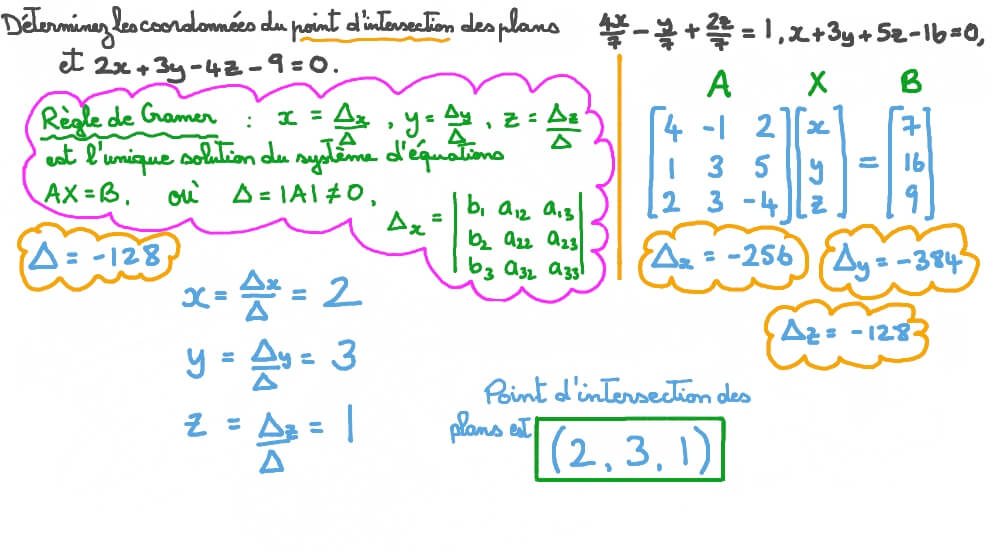 Déterminez les coordonnées du point d'intersection des plans 4x/7 - y/7 + 2z/7 = 1, x+3y+5z-16=0,
et 2x+3y-4z-9=0.
Règle de Cramer : x = Δx/Δ, y = Δy/Δ, z = Δz/Δ
est l'unique solution du système d'équations
AX=B, où Δ=|A|≠0,
Δx = | b1 a12 a13 |
| b2 a22 a23 |
| b3 a32 a33 |
A X B
[4 -1 2] [x] [7]
[1 3 5] [y] = [16]
[2 3 -4] [z] [9]
Δ = -128
Δx = -256
Δy = -384
Δz = -128
x = Δx/Δ = 2
y = Δy/Δ = 3
z = Δz/Δ = 1
Point d'intersection des
plans est (2, 3, 1)